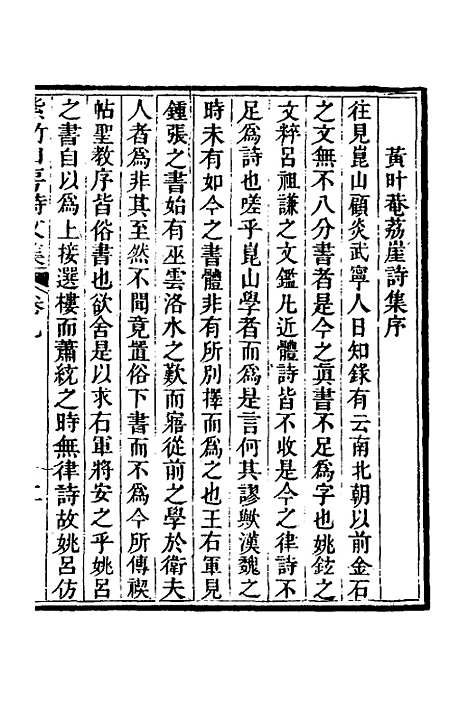 黃叶菴荔崖詩集序
往見崑山顧炎武寧人日知錄有云南北朝以前金石
之文無不八分書者是今之眞書不足爲字也姚鉉之
文粹呂祖謙之文鑑凡近體詩皆不收是今之律詩不
足爲詩也嗟乎崑山學者而爲是言何其謬歟漢魏之
時未有如今之書體非有所別擇而爲之也王右軍見
鍾張之書始有巫雲洛水之歎而寤從前之學於衛夫
人者爲非其至然不聞竟置俗下書而不爲今所傳禊
帖聖教序皆俗書也欲舍是以求右軍將安之乎姚呂
之書自以爲上接選樓而蕭統之時無律詩故姚呂仿
紫竹山房詩文集 卷九